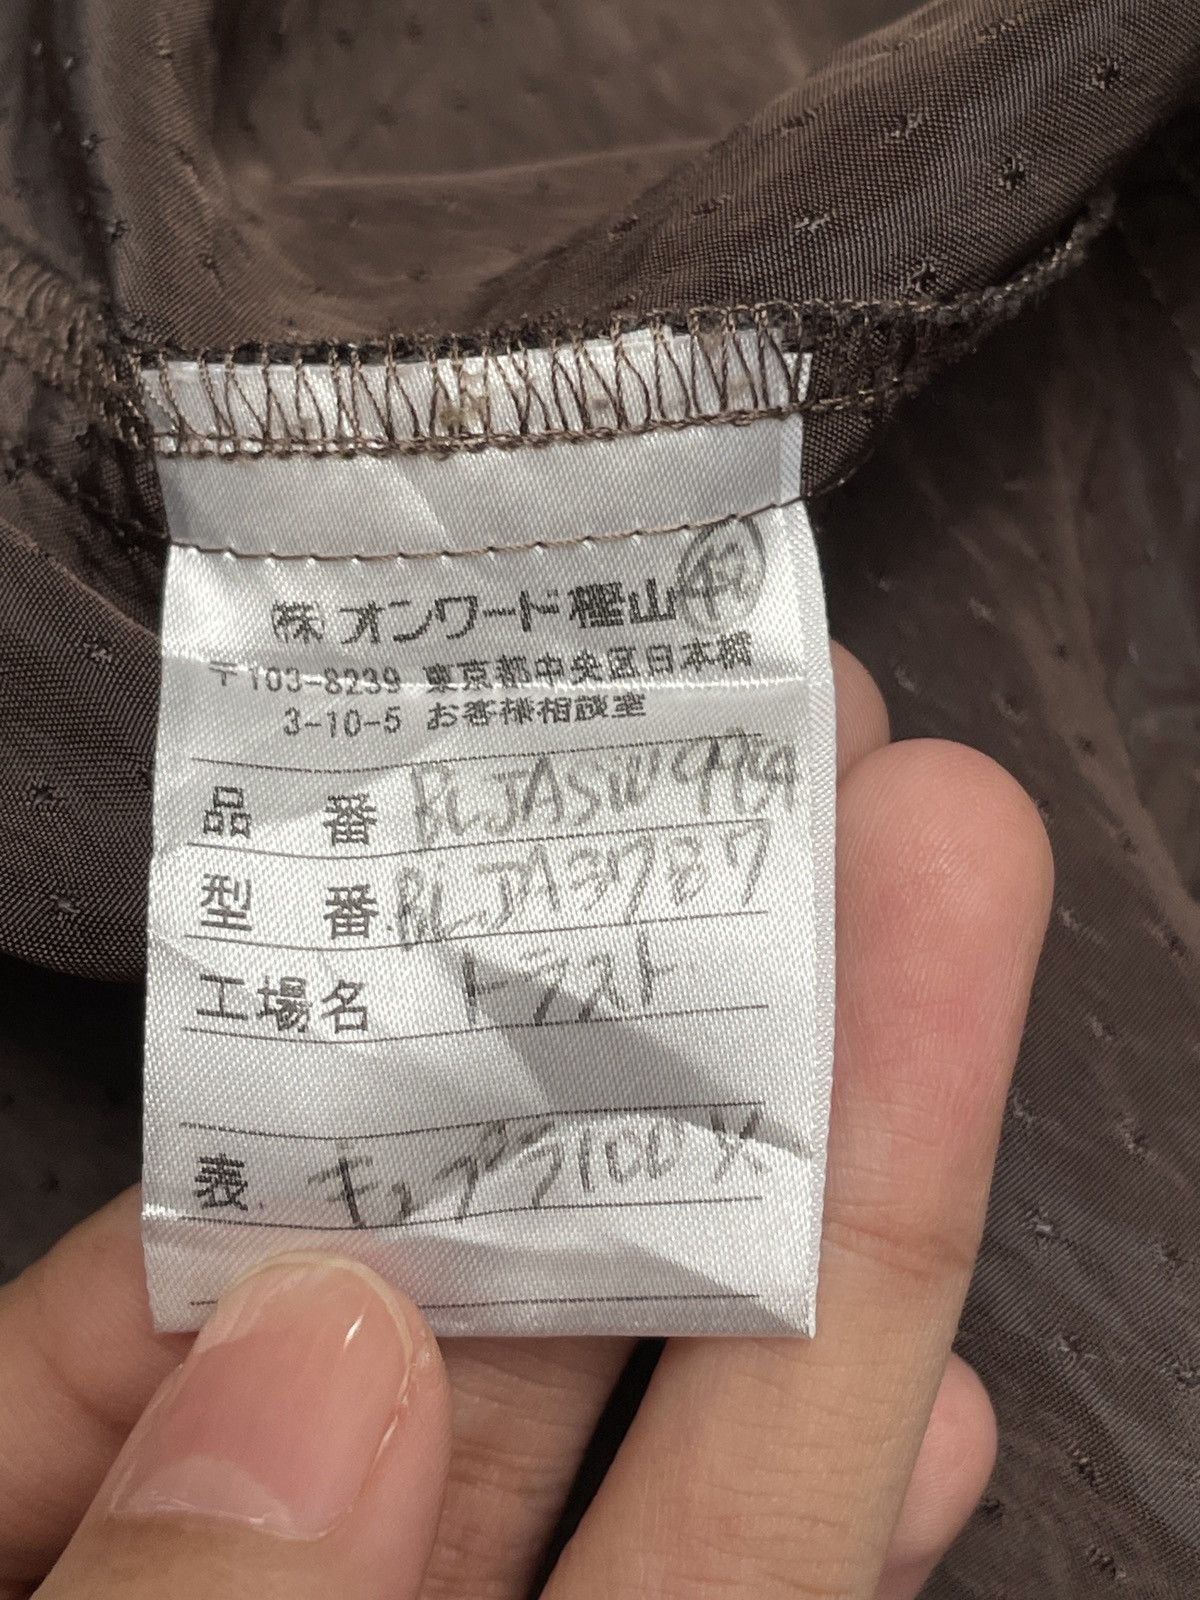 ㈱オンワード樫山 42
〒103-8239 東京都中央区日本橋
3-10-5 お客様相談室
品番
型番 BLJA3787
工場名 トラスト
表 キュプラ100%